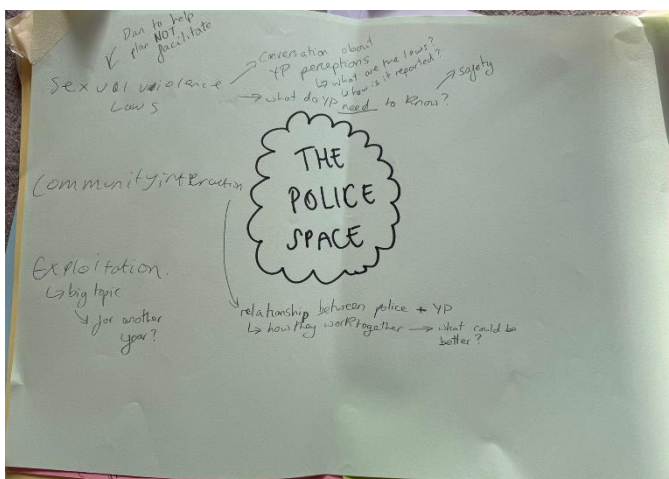 Dan to help
plan NOT
facilitate
Sexual violence
Laws
Conversation about
YP perceptions
↳ what are the laws?
↳ how is it reported?
→ what do YP need to know?
safety
THE
POLICE
SPACE
Community interaction
Exploitation.
↳ big topic
↘ for another
year?
relationship between police + YP
↳ how they work together → what could be
better?